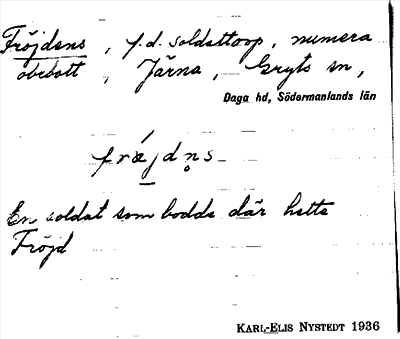 Fröjdens, f.d. soldattorp, numera
obebott, Järna, Gryts sn,
Daga hd, Södermanlands län
frǽjdn̥s
En soldat som bodde där hette
Fröjd
KARL-ELIS NYSTEDT 1936